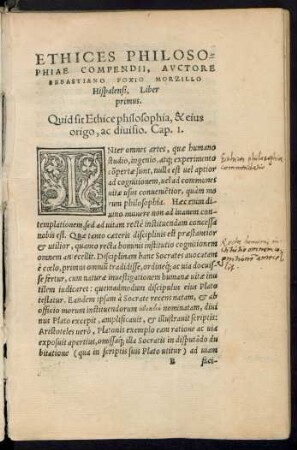 ETHICES PHILOSO-
PHIAE COMPENDII, AVCTORE
SEBASTIANO FOXIO MORZILLO
Hispalensi, Liber
primus.
Quid sit Ethice philosophia, & eius
origo, ac diuisio. Cap. 1.
INter omnes artes, quæ humano
studio, ingenio, atq; experimento
cōpertæ sunt, nulla est uel aptior
ad cognitionem, uel ad communes
uitæ usus, conuenientior, quàm mo
rum philosophia. Hæc enim di
uino munere non ad inanem con-
templationem sed ad uitam rectè instituendam concessa
nobis est. Quæ tanto cæteris disciplinis est præstantior
& utilior, quanto recta hominis institutio cognitionem
omnem antecellit. Disciplinam hanc Socrates auocatam
è cœlo, primus omnium
se fertur, cum naturæ inuestigationem humanæ uitæ in-
stitutioni quemadmodum discipulus eius Plato
testatur. Eandem ipsam à Socrate receptam, & ab
officio morum instituendorum nominatam, diui
nus Plato excepit, amplificauit, & illustrauit scriptis:
Aristoteles uerò, Platonis exemplo eam ratione ac uia
exposuit apertius, omissaq; illa Socratis in disputādo du
bitatione (qua in scriptis suis Plato utitur) ad uiam
B
Ethices philosophiæ
commendatio
Recta hominis in-
stitutio omnem
cognitionem antecel-
lit.